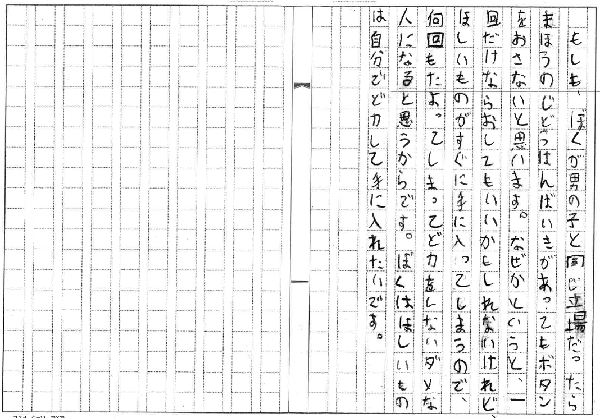 もしも、ぼくが男の子と同じ立場だったら
まほうのじどうはんばいきがあってもボタン
をおさないと思います。なぜかというと、一
回だけならおしてもいいかもしれないけれど、
ほしいものがすぐに手に入ってしまうので、
何回もたよってしまってどカをしないダメな
人になると思うからです。ぼくはほしいもの
は自分でどカして手に入れたいです。